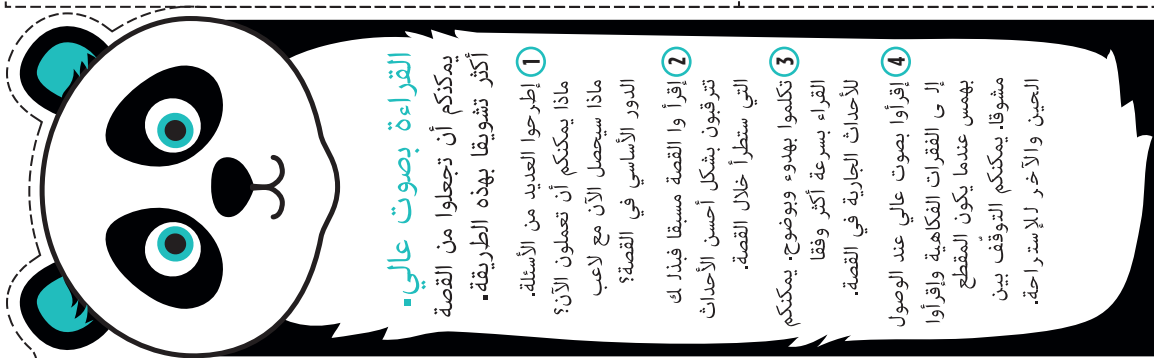 القراءة بصوت عالي.
يمكنكم أن تجعلوا من القصة
أكثر تشويقا بهذه الطريقة.
1
إطرحوا العديد من الأسئلة.
ماذا يمكنكم أن تعملون الآن؟
ماذا سيحصل الآن مع لاعب
الدور الأساسي في القصة؟
2
إقرأ وا القصة مسبقا فبذل ك
تترقبون بشكل أحسن الأحداث
التي ستطرأ خلال القصة.
3
تكلموا بهدوء وبوضوح. يمكنكم
القراء بسرعة أكثر وفقا
للأحداث الجارية في القصة.
4
إقرأوا بصوت عالي عند الوصول
إل ى الفقرات الفكاهية وإقرأوا
بهمس عندما يكون المقطع
مشوقا. يمكنكم التوقف بين
الحين والآخر للإستراحة.